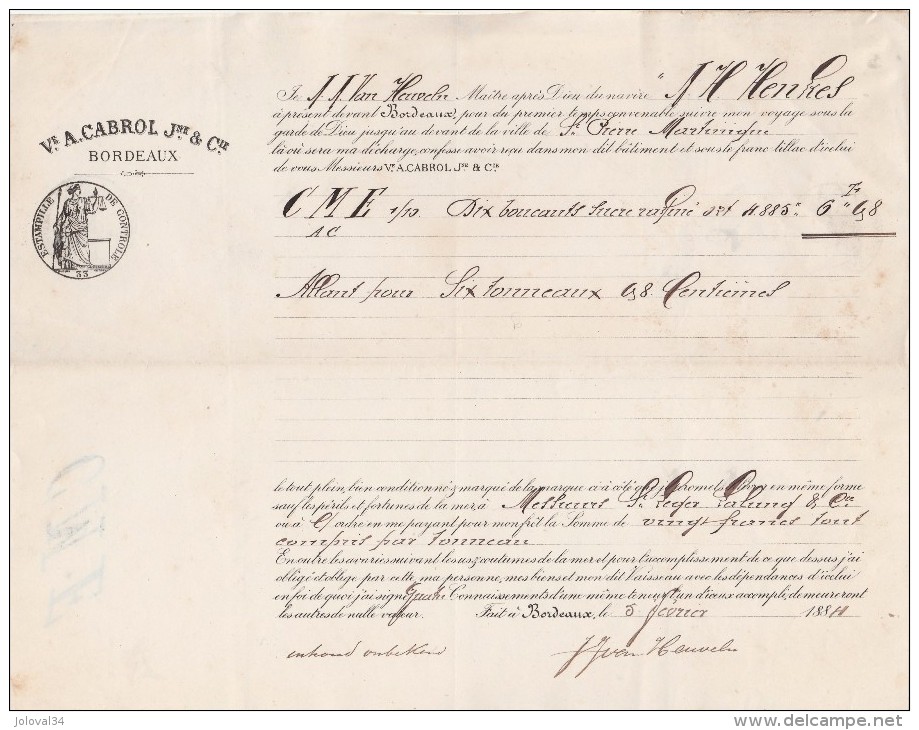 Vᵉ A. CABROL Jⁿᵉ & Cⁱᵉ
BORDEAUX
ESTAMPILLE DE CONTRÔLE
33
Je J. J. Van Heuveln Maître après Dieu du navire " J H Henkes
à présent devant Bordeaux, pour du premier temps convenable suivre mon voyage sous la
garde de Dieu jusqu'au devant de la ville de St Pierre Martinique
là où sera ma décharge, confesse avoir reçu dans mon dit bâtiment et sous le franc-tillac d'icelui
de vous Messieurs Vᵉ A. CABROL Jⁿᵉ & Cⁱᵉ
C M E 1/10 Dix boucauts sucre raffiné 4885 6 98
A C
Allant pour Six tonneaux 98 Centièmes
le tout plein, bien conditionné & marqué de la marque ci à côté que je promets livrer en même forme
sauf les périls et fortunes de la mer, à Messieurs St Leger Lalung & Cie
ou à S/ ordre en me payant pour mon frêt la Somme de vingt francs tout
compris par tonneau
En outre les avaries suivant les us & coutumes de la mer et pour l'accomplissement de ce que dessus j'ai
obligé et oblige par cette, ma personne, mes biens et mon dit Vaisseau avec les dépendances d'icelui
en foi de quoi j'ai signé quatre Connaissements d'une même teneur l'un d'iceux accompli, demeureront
les autres de nulle valeur. Fait à Bordeaux, le 5 février 1881
inhoud onbekend J J van Heuveln
joloval34
delcampe.net